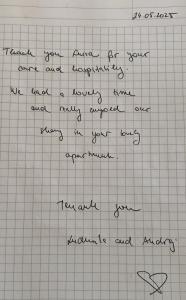 24.05.2025
Thank you for your
care and hospitality.
We had a lovely time
and really enjoyed our
stay in your
apartment.
Thank you
and Andrey